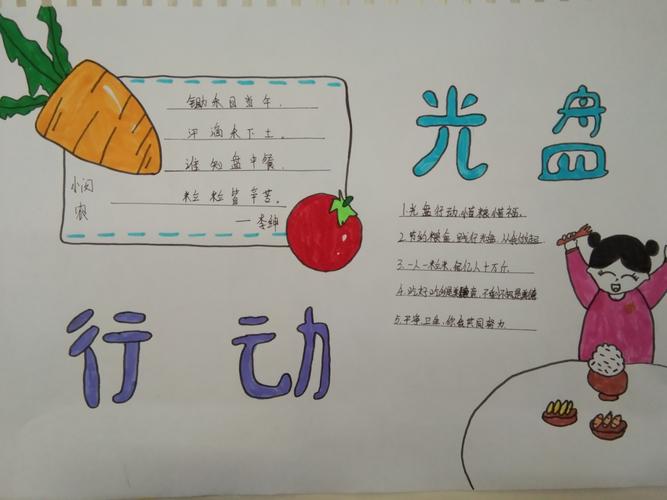 光盘
行动
锄禾日当午.
汗滴禾下土。
谁知盘中餐.
粒粒皆辛苦。
—李绅
悯
农
1.光盘行动,惜粮惜福.
2.节约粮食,践行光盘,从我做起.
3.一人一粒米,亿人十万斤.
4.
5.干净卫生,你我共同努力.